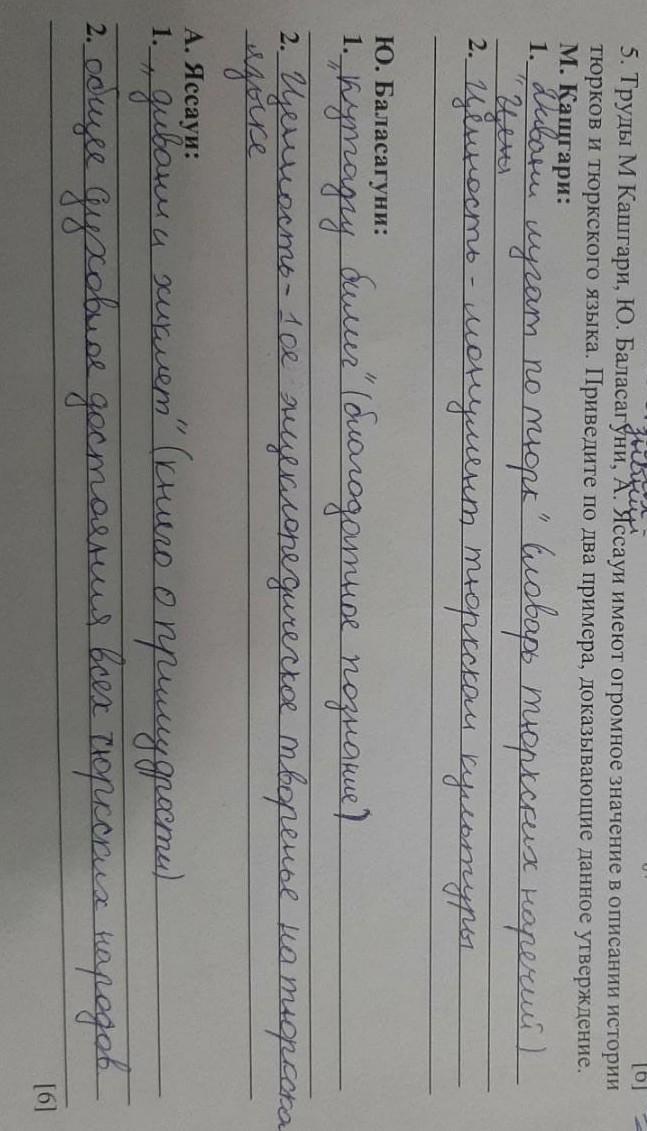 5. Труды М Кашгари, Ю. Баласагуни, А. Яссауи имеют огромное значение в описании истории
тюрков и тюркского языка. Приведите по два примера, доказывающие данное утверждение.
М. Кашгари:
1. "Дивани лугат по тюрк" (словарь тюркских наречий)
"Цены
2. Ценность - монумент тюркском культуры
Ю. Баласагуни:
1. „Кутадгу билиг" (благодатное познание")
2. Ценность - 1ое энциклопедическое творенье на тюркска
языке
А. Яссауи:
1. „ дивани и хикмет" (книго о примудрости)
2. общее духовное достояния всех тюркских народов
[6]
[6]